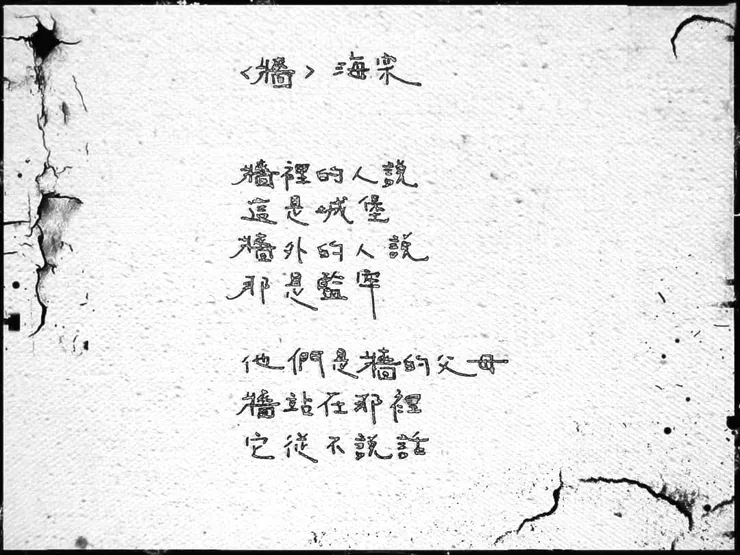 〈牆〉海宗
牆裡的人說
這是城堡
牆外的人說
那是監牢
他們是牆的父母
牆站在那裡
它從不說話